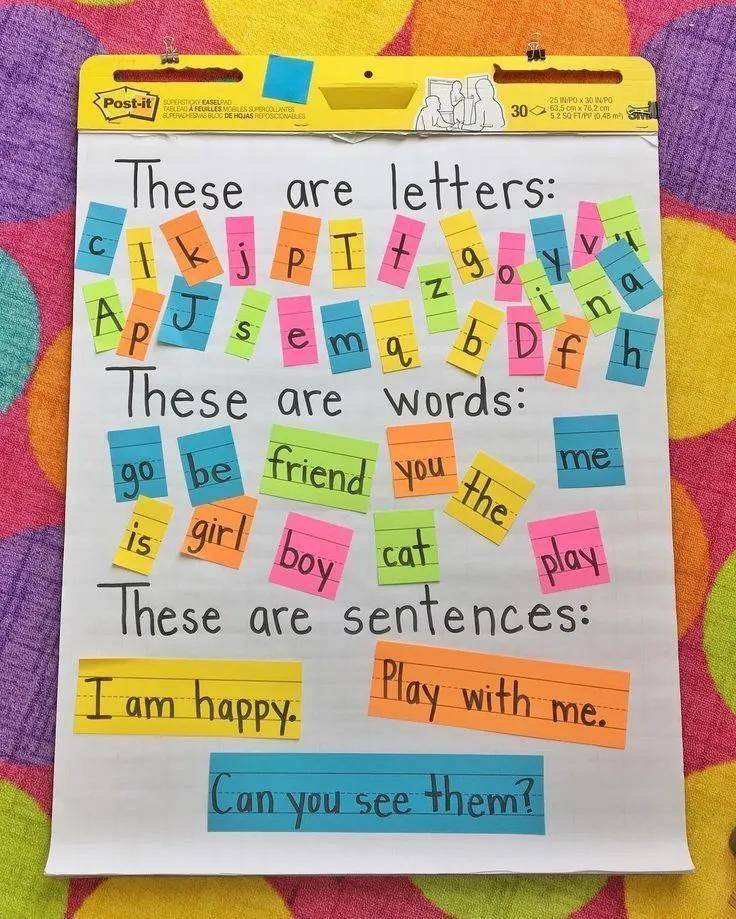 Post-it SUPERSTICKY EASEL PAD 30 25 IN/PO x 30 IN/PO
TABLEAU À FEUILLES MOBILES SUPERCOLLANTES 63,5 cm x 76,2 cm
BLOC DE HOJAS REPOSICIONABLES 5.2 SQ FT/PI² (0,48 m²)
These are letters:
c l k j p T t g o y v u
A p J s e m q z b D i f n a h
These are words:
go be friend you the me
is girl boy cat play
These are sentences:
I am happy. Play with me.
Can you see them?